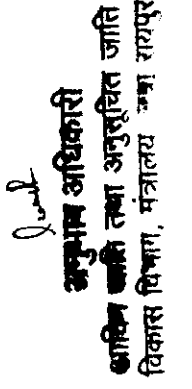 अनुभाग अधिकारी
आदिम जाति तथा अनुसूचित जाति
विकास विभाग, मंत्रालय नवा रायपुर